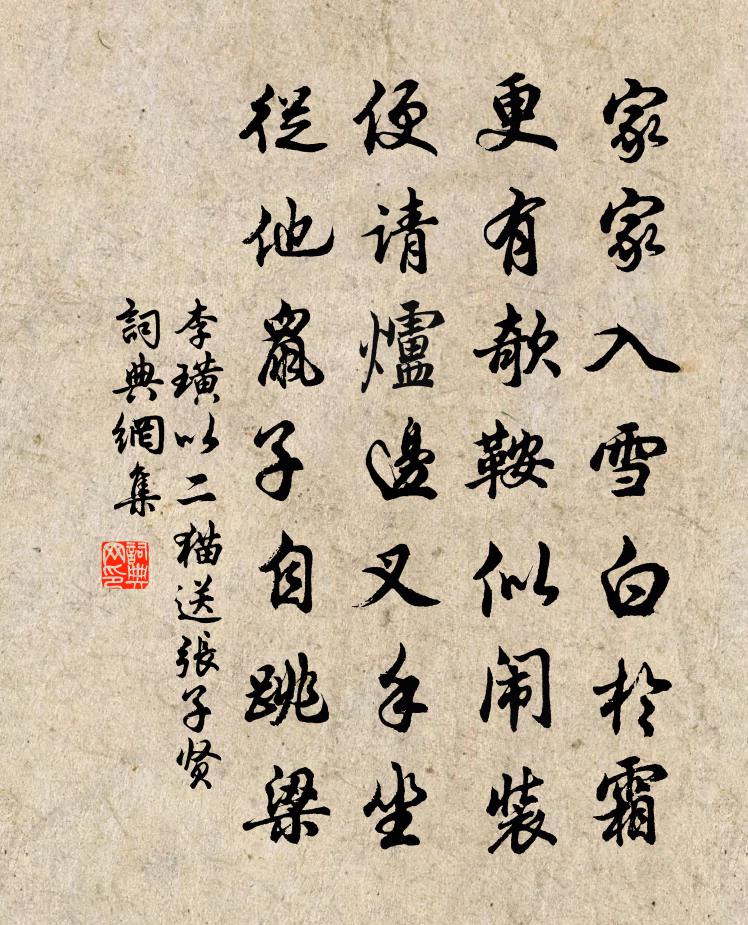 家家入雪白於霜
更有欹鞍似闹装
便请爐邊叉手坐
從他鼠子自跳梁
李璜以二猫送張子贤
詞典網集
詞典
网印